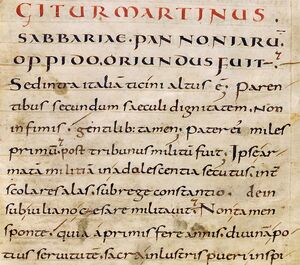 GITUR MARTINUS.
SABBARIAE. PANNONIARŪ
OPPIDO. ORIUNDUS FUIT.
Sed intra italiā ticini altus ē; Paren
tibus secundum saeculi dignitatem. Non
infimis. gentilib; tamen; Pater ei miles
primū. post tribunus militū fuit. Ipse ar
matā militiā in adolescentia secutus. int
scolares alas. sub rege constantio. dein
sub iuliano caesare militavit; Non tamen
sponte. quia a primis fere annis. divinā po
tius servitutē. sacra inlustris pueri inspi